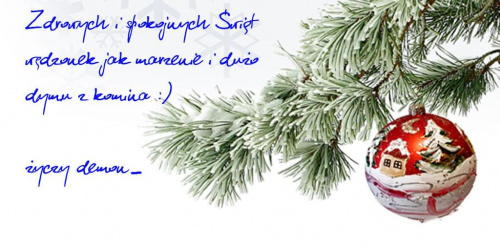 Zdrowych i spokojnych Świąt
wędzonek jak marzenie i dużo
dymu z komina :)
życzy demon_